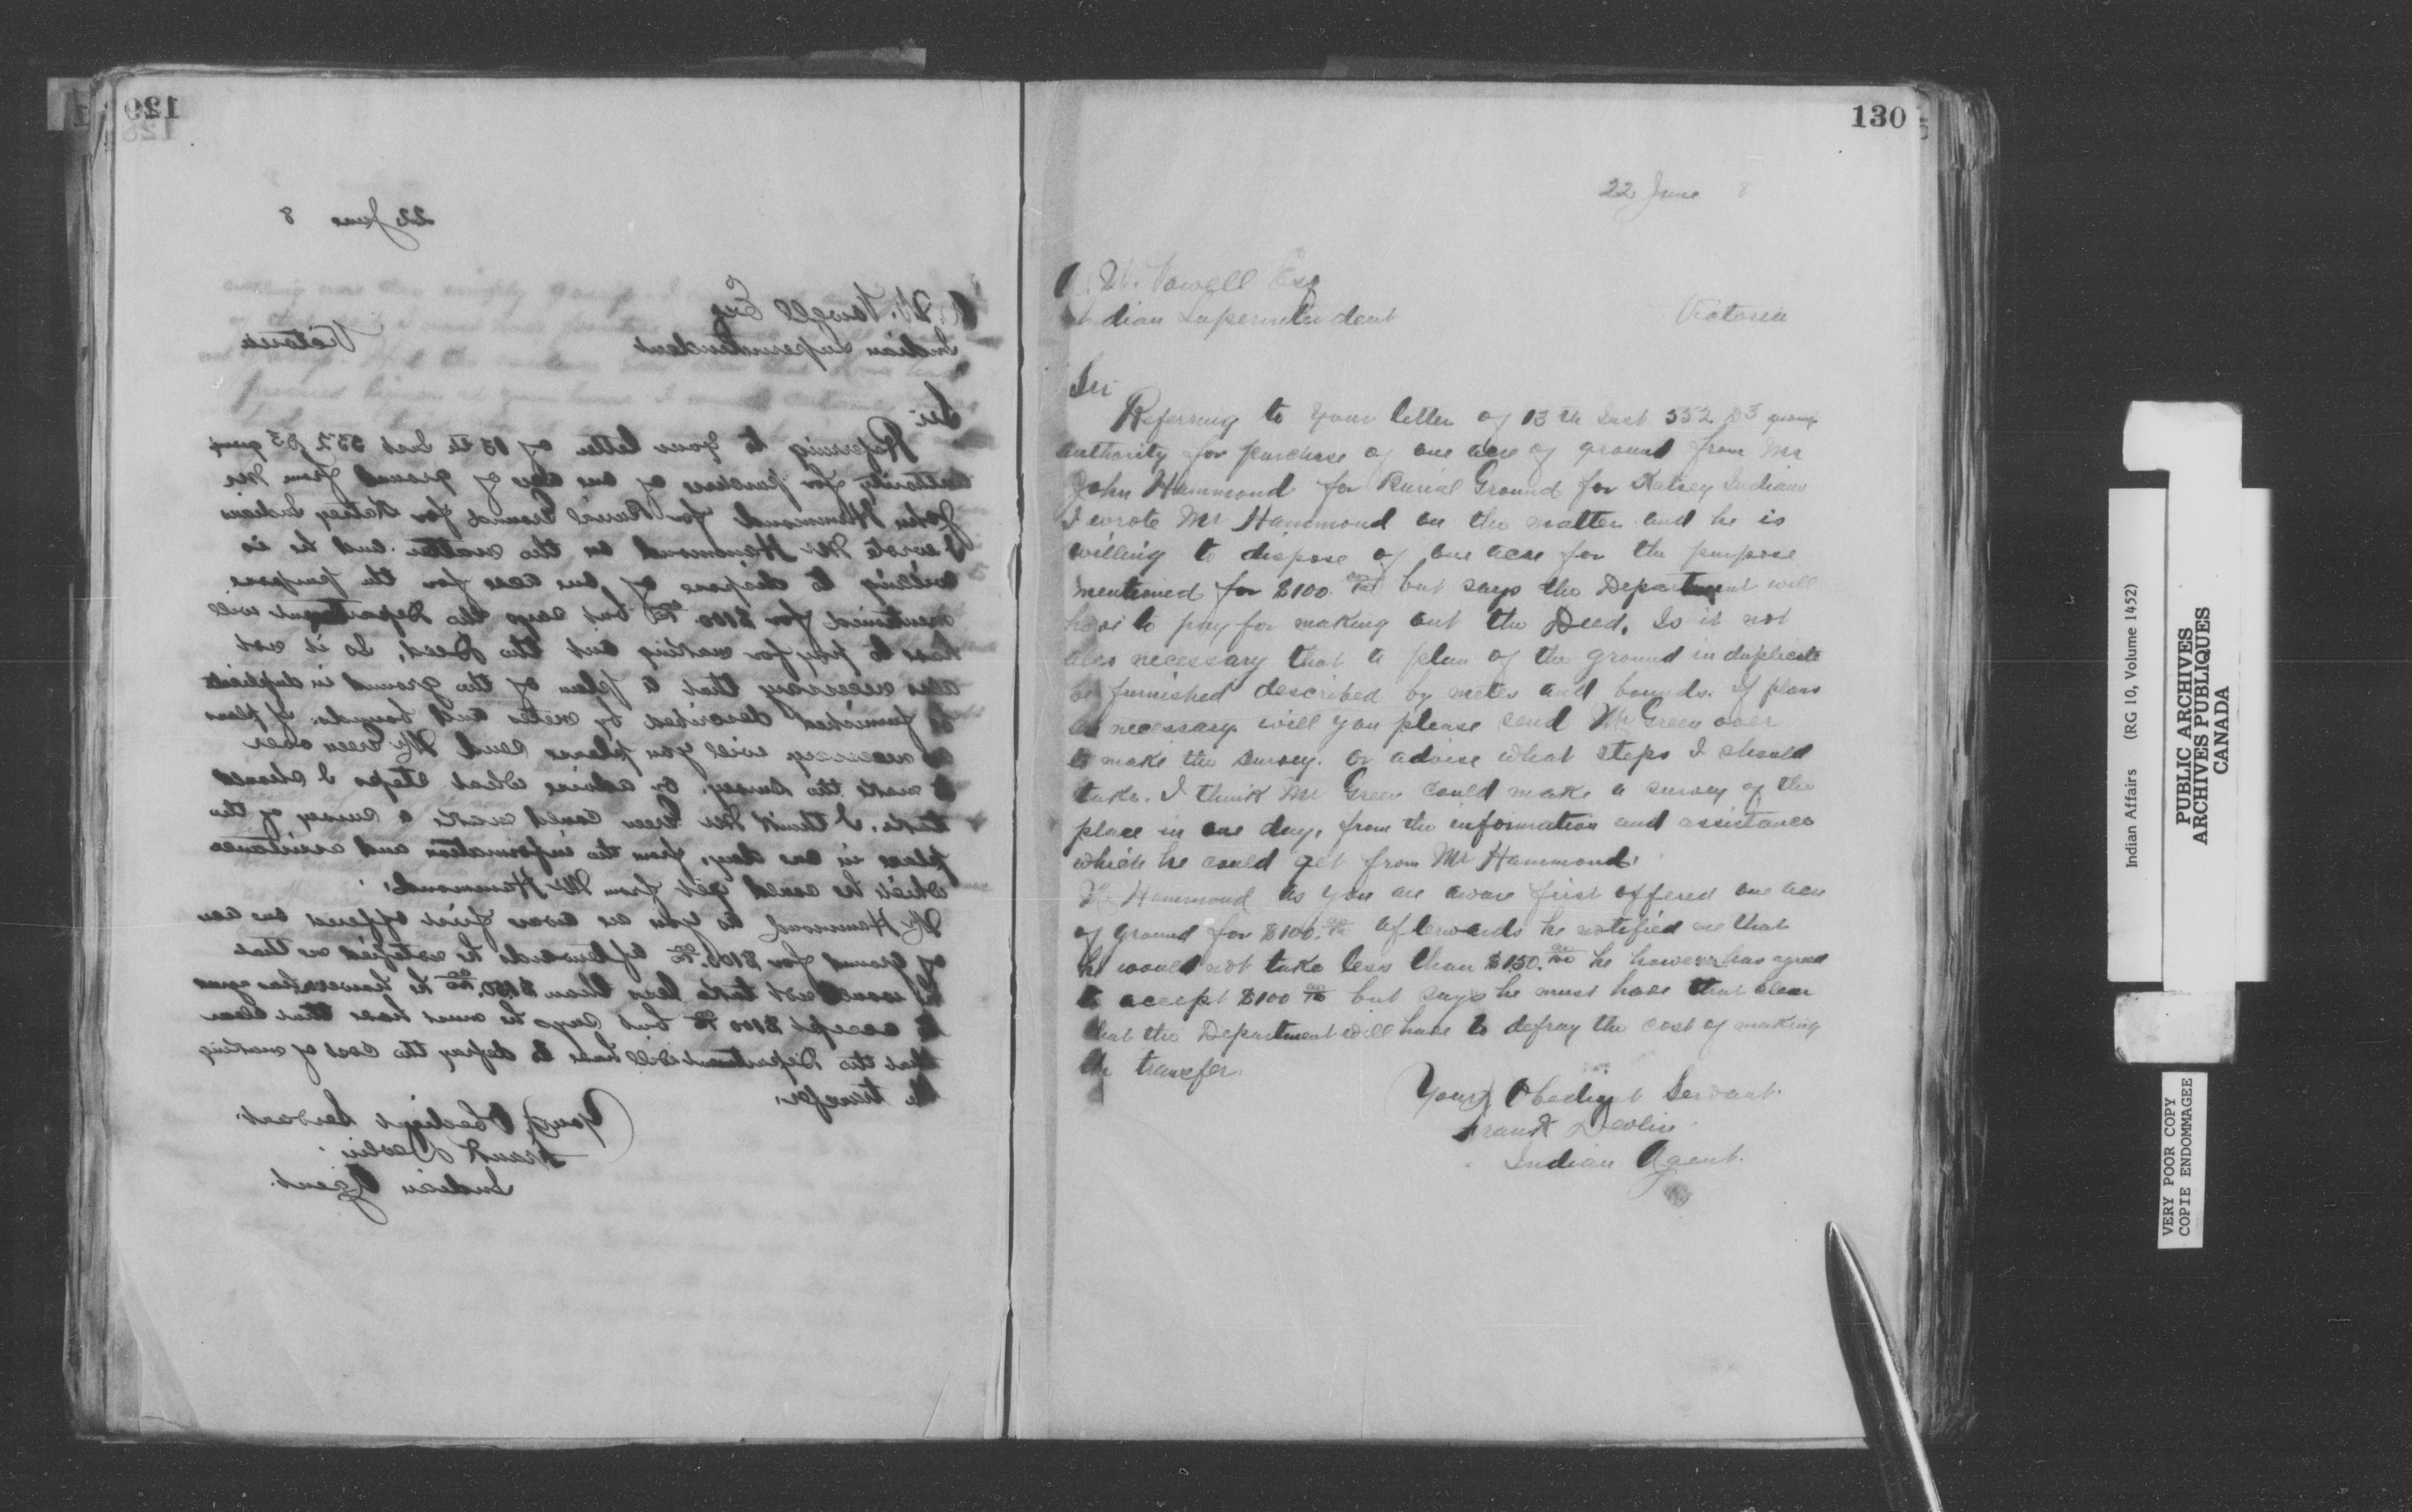 129
128
130
22 June 8
A. W. Vowell Esq
Indian Superintendent Victoria
Sir
Referring to your letter of 13th Inst 552 giving
authority for purchase of one acre of ground from Mr
John Hammond for Burial Ground for Katsey Indians
I wrote Mr Hammond on the matter and he is
willing to dispose of one acre for the purpose
mentioned for $100.00/100 but says the Department will
have to pay for making out the Deed. Is it not
also necessary that a plan of the ground in duplicate
be furnished described by metes and bounds. If plans
as necessary will you please send Mr Green over
to make the survey. or advise what steps I should
take. I think Mr Green could make a survey of the
place in one day, from the information and assistance
which he could get from Mr Hammond.
Mr Hammond as you are aware first offered one acre
of ground for $100.00/100 afterwards he notified me that
he would not take less than $150.00/100 he however has agreed
to accept $100 00/100 but says he must have that clear
that the Department will have to defray the cost of making
the transfer.
Your Obedient Servant.
Frank Devlin
Indian Agent.
Indian Affairs (RG 10, Volume 1452)
PUBLIC ARCHIVES
ARCHIVES PUBLIQUES
CANADA
VERY POOR COPY
COPIE ENDOMMAGEE